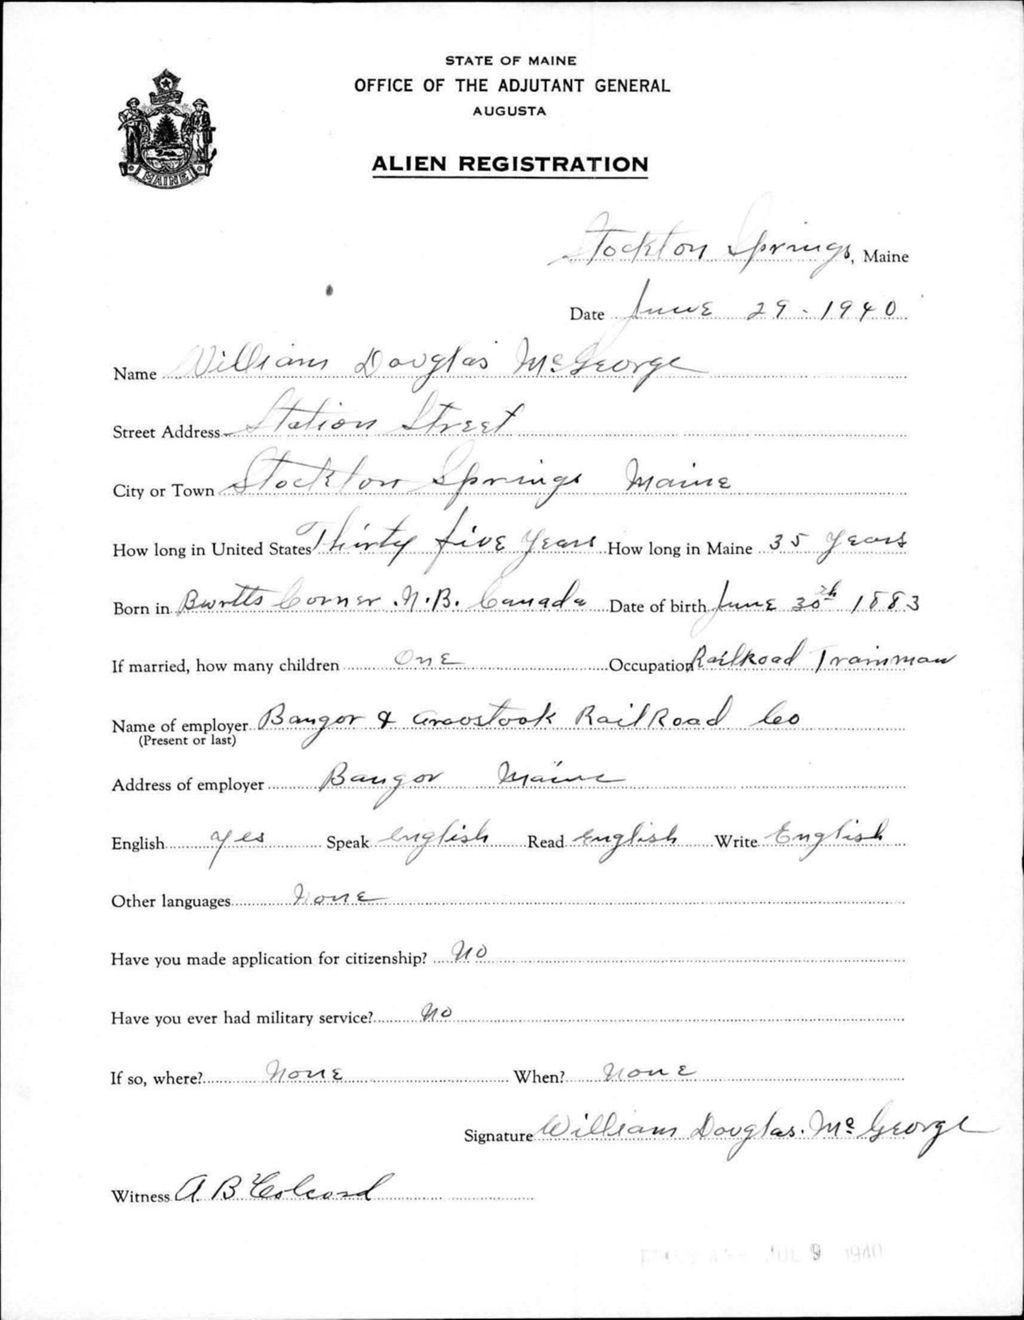 STATE OF MAINE
OFFICE OF THE ADJUTANT GENERAL
AUGUSTA
ALIEN REGISTRATION
MAINE
Stockton Springs, Maine
Date June 29-1940
Name William Douglas McGeorge
Street Address Station Street
City or Town Stockton Springs Maine
How long in United States Thirty five years How long in Maine 35 years
Born in Burtts Corner. N.B. Canada Date of birth June 30th 1883
If married, how many children One Occupation Railroad Trainman
Name of employer Bangor & Aroostook RailRoad Co
(Present or last)
Address of employer Bangor Maine
English yes Speak English Read English Write English
Other languages None
Have you made application for citizenship? No
Have you ever had military service? No
If so, where? None When? None
Signature William Douglas. McGeorge
Witness A B Colcord
JUL 9 1940